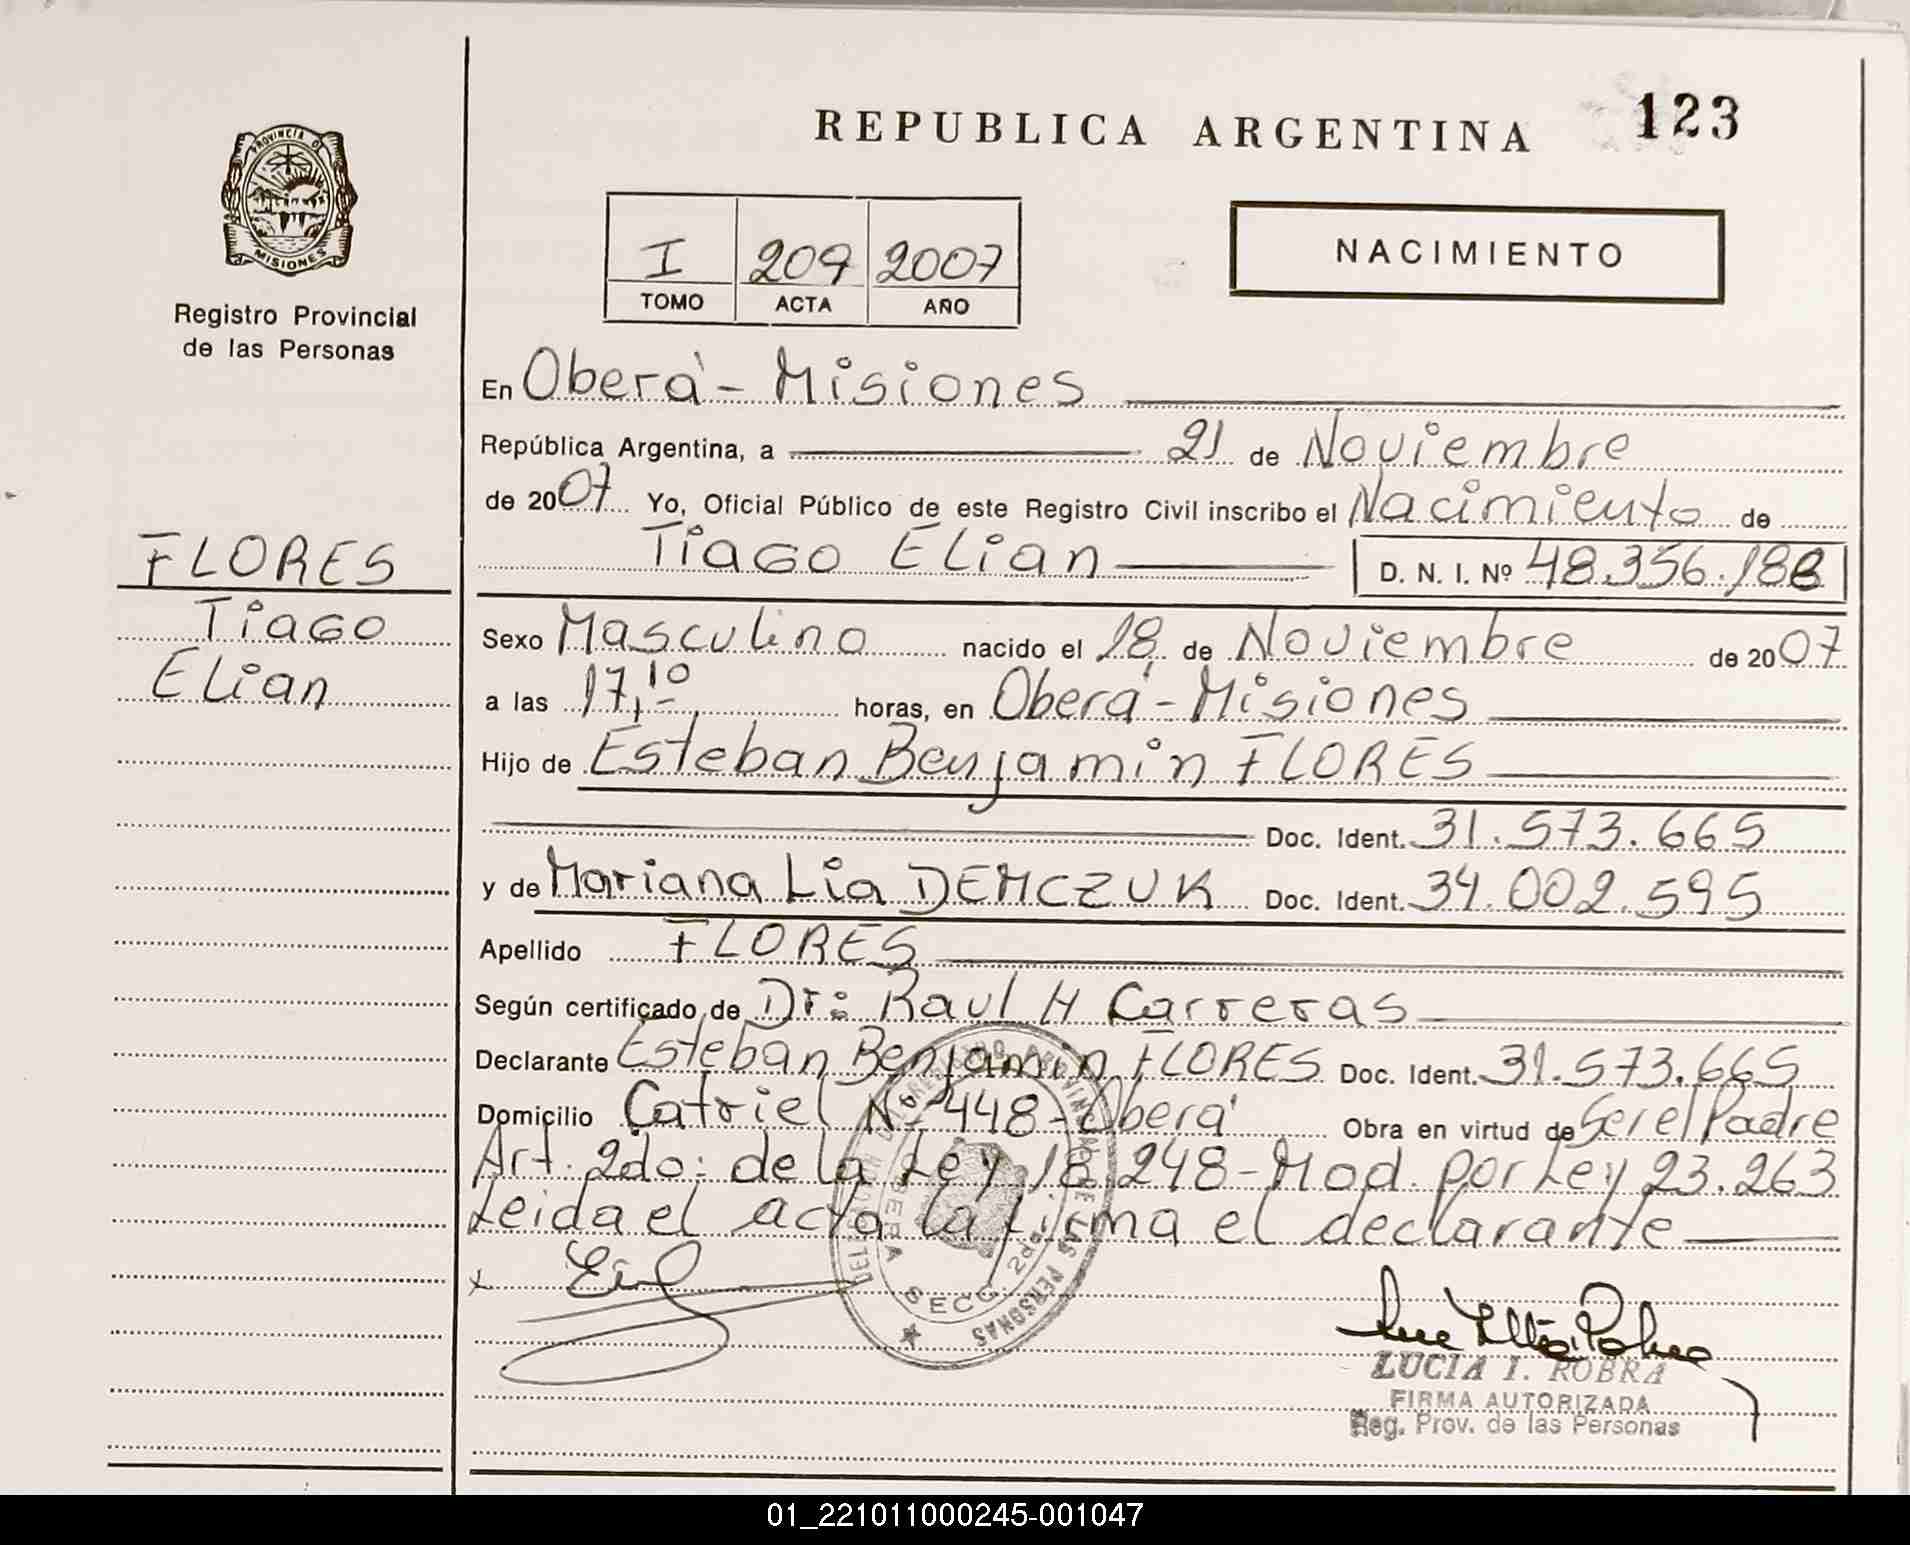 REPUBLICA ARGENTINA 123
PROVINCIA D
MISIONES
Registro Provincial
de las Personas
I 209 2007
TOMO ACTA AÑO
NACIMIENTO
En Oberá - Misiones
República Argentina, a 21 de Noviembre
de 2007 Yo, Oficial Público de este Registro Civil inscribo el Nacimiento de
Tiago Elian D. N. I. Nº 48.356.188
FLORES
Tiago
Elian
Sexo Masculino nacido el 18 de Noviembre de 2007
a las 17,10 horas, en Oberá - Misiones
Hijo de Esteban Benjamin FLORES
Doc. Ident. 31.573.665
y de Mariana Lia DEMCZUK Doc. Ident. 34.002.595
Apellido FLORES
Según certificado de Dr: Raul H Carreras
Declarante Esteban Benjamin FLORES Doc. Ident. 31.573.665
Domicilio Catriel Nº 448 - Oberá Obra en virtud de Ser el Padre
Art. 2do: de la Ley 18.248 - Mod. por Ley 23.263
Leida el acta la firma el declarante
SECC. 2da.
LUCIA I. ROBRA
FIRMA AUTORIZADA
Reg. Prov. de las Personas
01_221011000245-001047